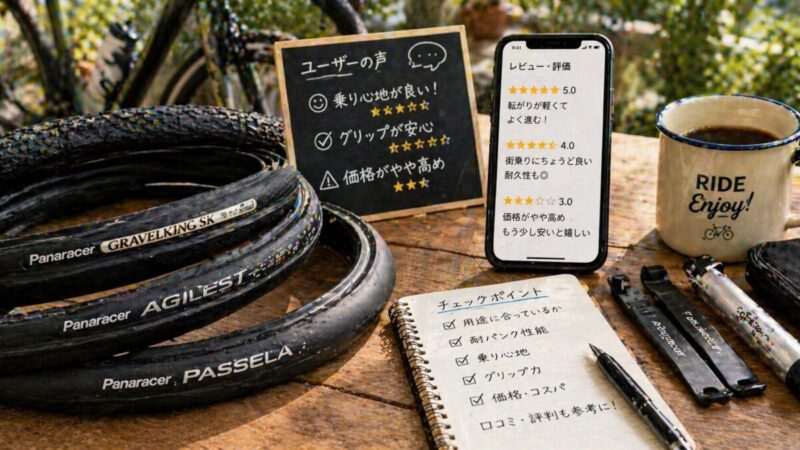 ユーザーの声
乗り心地が良い！
グリップが安心
価格がやや高め
レビュー・評価
5.0
転がりが軽くて
よく進む！
4.0
街乗りにちょうど良い
耐久性も◎
3.0
価格がやや高め
もう少し安いと嬉しい
RIDE
Enjoy!
Panaracer GRAVELKING SK
Panaracer AGILEST
Panaracer PASSELA
チェックポイント
用途に合っているか
耐パンク性能
乗り心地
グリップ力
価格・コスパ
口コミ・評判も参考に！